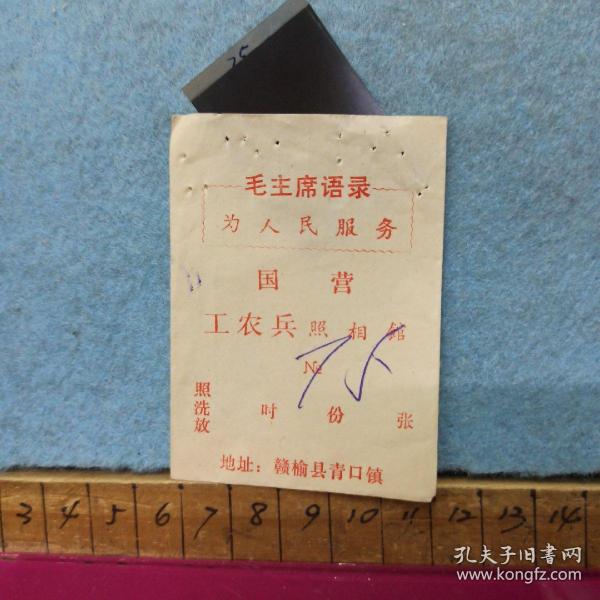 75
毛主席语录
为人民服务
国营
工农兵照相馆
№ 75
照洗放 吋 份 张
地址：赣榆县青口镇
3 4 5 6 7 8 9 10 11 12 13 14
孔夫子旧书网
www.kongfz.com